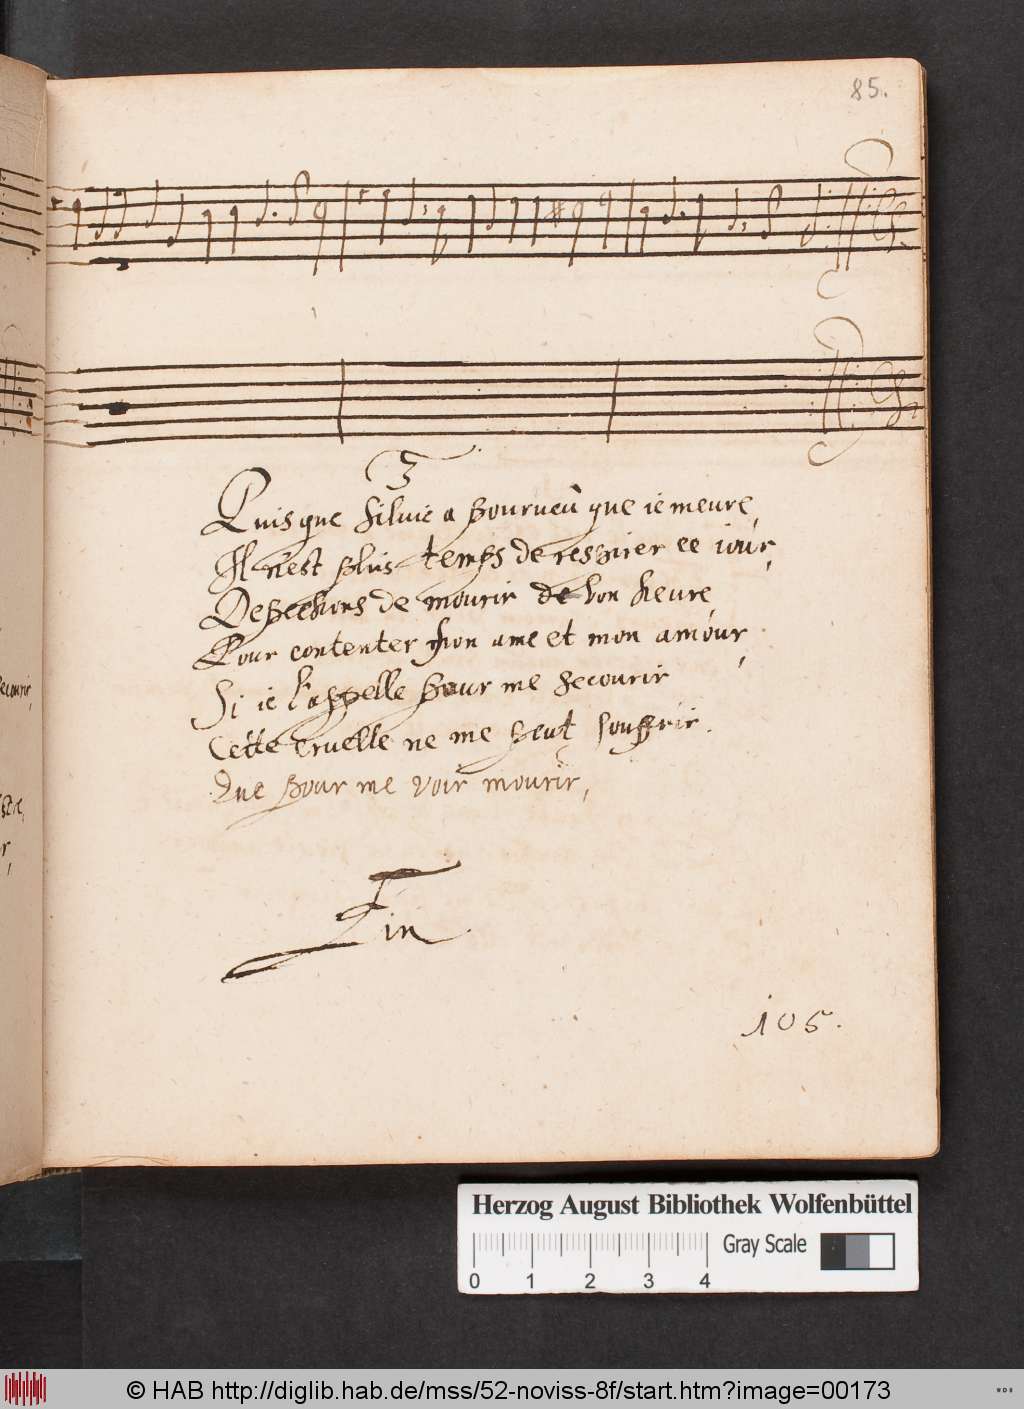 85.
3
Puisque Silvie a pourueu que ie meure
Il n'est plus temps de respirer ce iour,
Depechons de mourir de bon heure
Pour contenter son ame et mon amour,
Si ie l'appelle pour me secourir
Cette cruelle ne me peut souffrir.
Que pour me voir mourir,
Fin
105.
Herzog August Bibliothek Wolfenbüttel
Gray Scale
0 1 2 3 4
© HAB http://diglib.hab.de/mss/52-noviss-8f/start.htm?image=00173